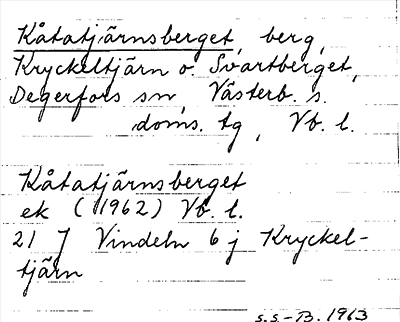 Kåtatjärnsberget, berg,
Kryckeltjärn o. Svartberget,
Degerfors sn, Västerb. s.
doms. tg, Vb. l.
Kåtatjärnsberget
ek (1962) Vb. l.
21 J Vindeln 6 j Kryckel-
tjärn
s.s.-B. 1963